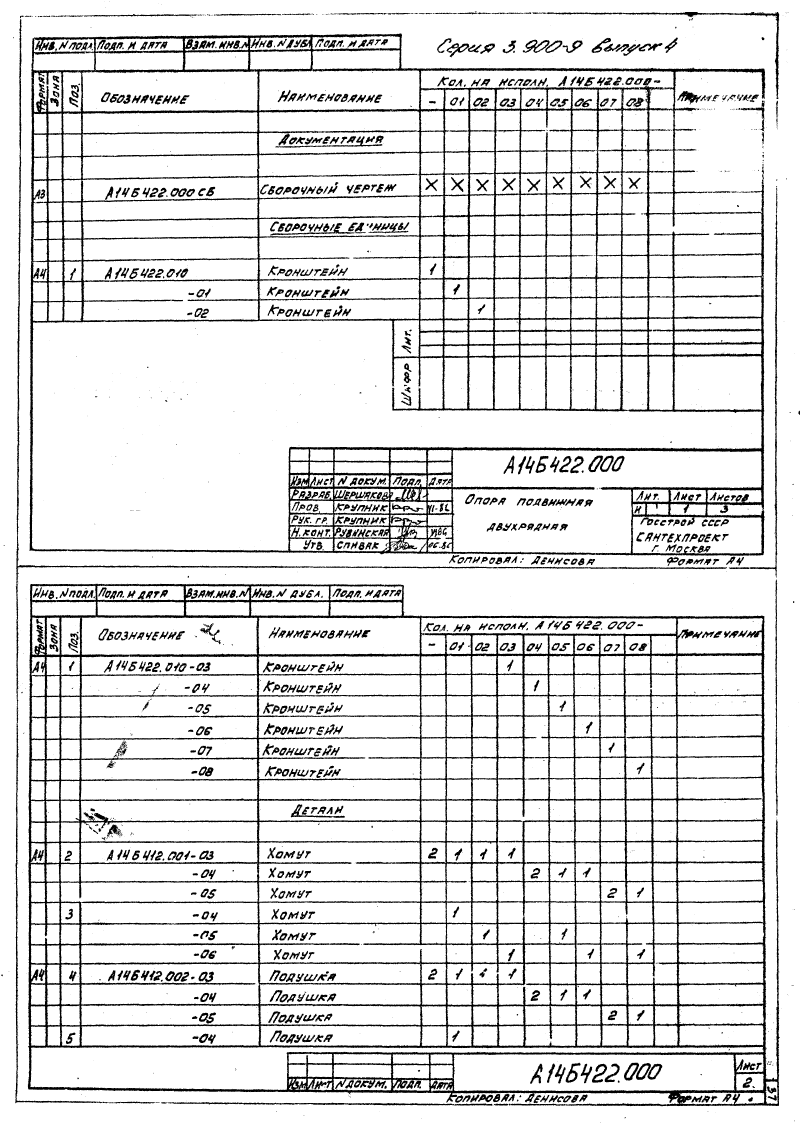 Серия 3.900-9 выпуск 4
Инв. N подл. Подп. и дата Взам. инв. N Инв. N дубл. Подп. и дата
Формат Зона Поз. Обозначение Наименование Кол. на исполн. А14Б422.000- Примечание
- 01 02 03 04 05 06 07 08
Документация
А3 А14Б422.000 СБ Сборочный чертеж X X X X X X X X X
Сборочные единицы
А4 1 А14Б422.010 Кронштейн 1
-01 Кронштейн 1
-02 Кронштейн 1
Лит.
Шифр
А14Б422.000
Изм Лист N докум. Подп. Дата
Разраб. Шершакова
Пров. Крупник 11-86
Рук. гр. Крупник
Н. конт. Рубинская
Утв. Спивак 06.86
Опора подвижная
двухрядная
Лит. Лист Листов
И 1 3
Госстрой СССР
Сантехпроект
г. Москва
Копировал: Денисова Формат А4
Инв. N подл. Подп. и дата Взам. инв. N Инв. N дубл. Подп. и дата
Формат Зона Поз. Обозначение Наименование Кол. на исполн. А14Б422.000- Примечание
- 01 02 03 04 05 06 07 08
А4 1 А14Б422.010-03 Кронштейн 1
-04 Кронштейн 1
-05 Кронштейн 1
-06 Кронштейн 1
-07 Кронштейн 1
-08 Кронштейн 1
Детали
А4 2 А14Б412.001-03 Хомут 2 1 1 1
-04 Хомут 2 1 1
-05 Хомут 2 1
3 -04 Хомут 1
-05 Хомут 1 1
-06 Хомут 1 1 1
А4 4 А14Б412.002-03 Подушка 2 1 1 1
-04 Подушка 2 1 1
-05 Подушка 2 1
5 -04 Подушка 1
А14Б422.000
Лист
2
Изм Лист N докум. Подп. Дата
Копировал: Денисова Формат А4
37